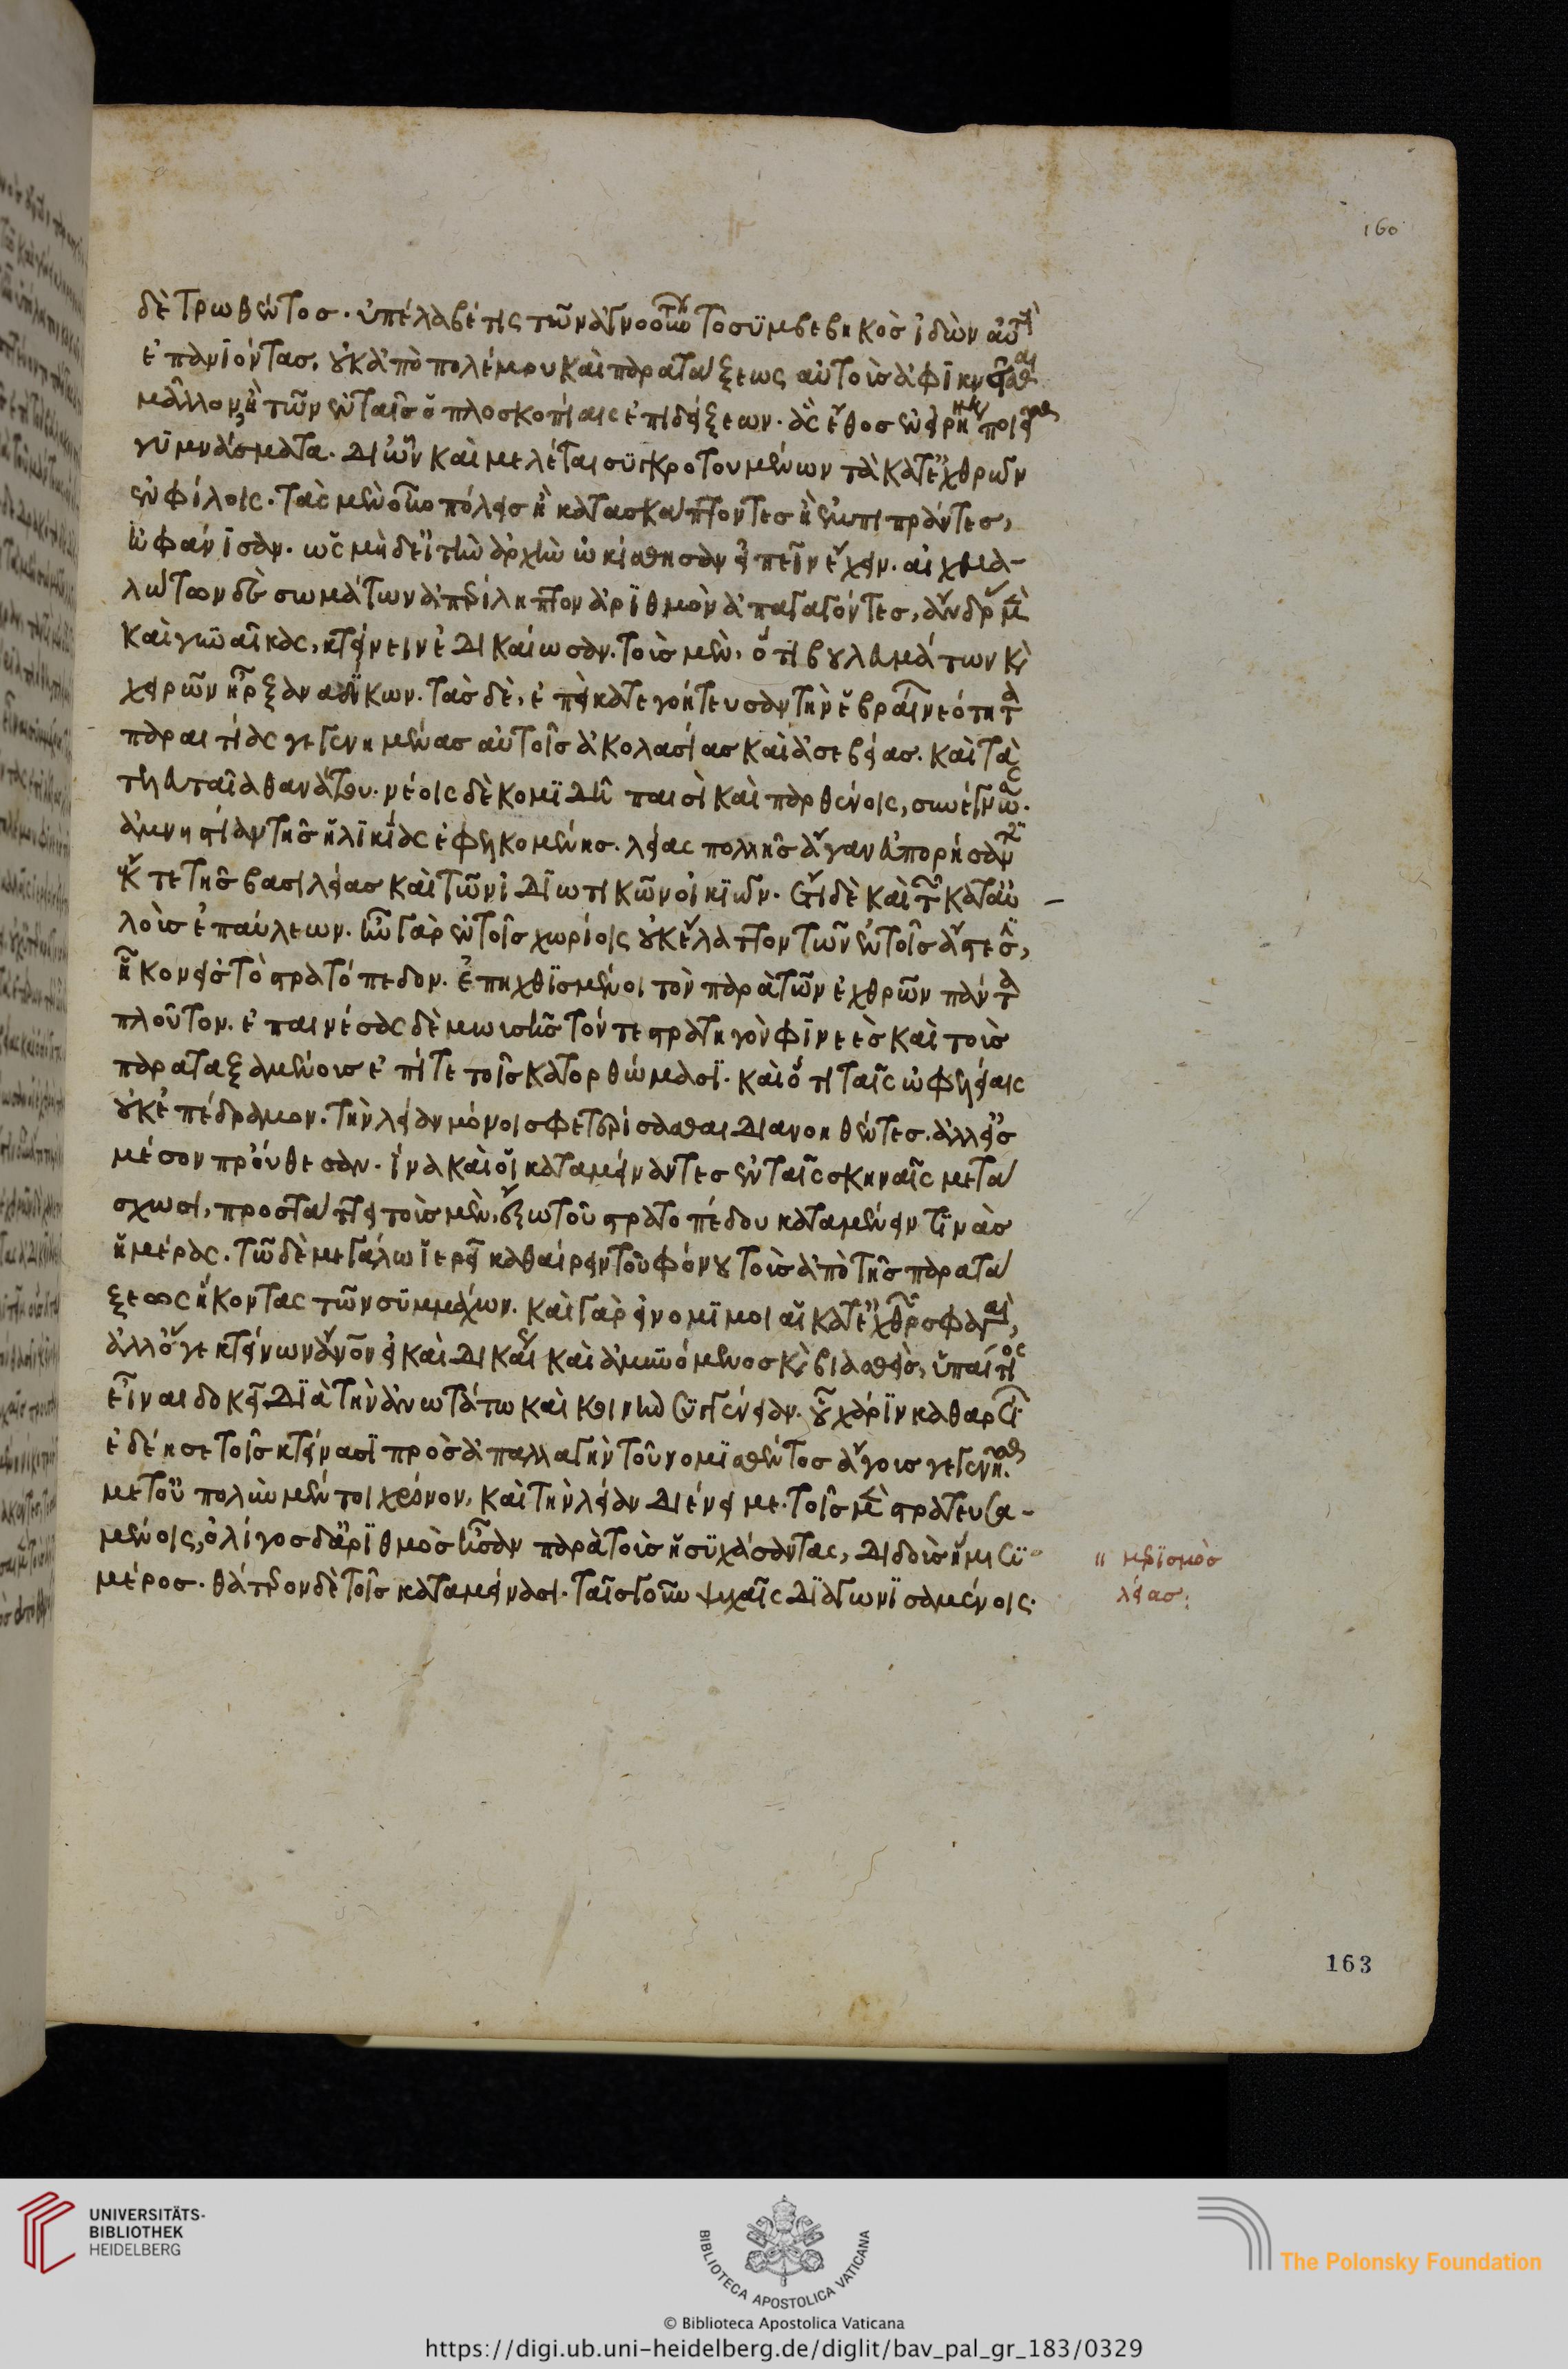 160
δὲ τρωθέντος. ὑπέλαβέ τις τῶν ἀγνοούντων τὸ συμβεβηκὸς ἰδὼν αὐτοὺς
ἐπανιόντας, οὐκ ἀπὸ πολέμου καὶ παρατάξεως αὐτοὺς ἀφικνεῖσθαι
μᾶλλον, ἢ τῶν ἐν ταῖς ὁπλοσκοπίαις ἐπιδείξεων. ἃς ἔθος ἐν εἰρήνῃ ποιεῖσθαι
γυμνάσματα. δι' ὧν καὶ μελέται συγκροτουμένων τὰ κατ' ἐχθρῶν
ἐν φίλοις. τὰς μὲν οὖν πόλεις ἢ κατασκάπτοντες ἢ ἐμπιπράντες,
ἠφάνισαν. ὡς μηδ' εἰ τὴν ἀρχὴν ᾠκίσθησαν εἰπεῖν ἔχειν. αἰχμα-
λώτων δὲ σωμάτων ἀπερίληπτον ἀριθμὸν ἀπαγαγόντες, ἄνδρας μὲν
καὶ γυναῖκας, κτείνειν ἐδικαίωσαν. τοὺς μὲν, ὅτι βουλευμάτων καὶ
χειρῶν ἦρξαν ἀδίκων. τὰς δὲ, ἐπεὶ κατεγοήτευσαν τὴν ἑβραίων νεότητα
παραιτίας γεγενημένας αὐτοῖς ἀκολασίας καὶ ἀσεβείας. καὶ τὰ
τελευταῖα θανάτου. νέοις δὲ κομιδῇ παισὶ καὶ παρθένοις, συνέγνωσαν.
ἀμνηστίαν τῆς ἡλικίας ἐφελκομένης. λείας πολλῆς ἄγαν εὐπορήσαντες
ἔκ τε τῆς βασιλείας καὶ τῶν ἰδιωτικῶν οἰκιῶν. ἔτι δὲ καὶ τῶν κατὰ αὐ
λοὺς ἐπαύλεων. ἦν γὰρ ἐν τοῖς χωρίοις οὐκ ἔλαττον τῶν ἐν τοῖς ἄστεσιν,
ἧκον εἰς τὸ στρατόπεδον. ἐπηχθισμένοι τὸν παρὰ τῶν ἐχθρῶν πάντα
πλοῦτον. ἐπαινέσας δὲ μωυσῆς τόν τε στρατηγὸν φινεὲς καὶ τοὺς
παραταξαμένους ἐπί τε τοῖς κατορθώμασι. καὶ ὅτι ταῖς ὠφελείαις
οὐκ ἐπέδραμον. τὴν λείαν μόνοι σφετερίσασθαι διανοηθέντες. ἀλλ' εἰς
μέσον προύθεσαν. ἵνα καὶ οἱ καταμείναντες ἐν ταῖς σκηναῖς μετά
σχωσι, προστάττει τοὺς μὲν, ἔξω τοῦ στρατοπέδου καταμένειν τινὰς
ἡμέρας. τῷ δὲ μεγάλῳ ἱερεῖ καθαίρειν τοῦ φόνου τοὺς ἀπὸ τῆς παρατά
ξεως ἥκοντας τῶν συμμάχων. καὶ γὰρ εἰ νόμιμοι αἱ κατ' ἐχθρῶν σφαγαί,
ἀλλ' ὅγε κτείνων ἄνθρωπον εἰ καὶ δικαίως καὶ ἀμυνόμενος καὶ βιασθεὶς, ὑπαίτιος
εἶναι δοκεῖ διὰ τὴν ἀνωτάτω καὶ κοινὴν συγγένειαν. οὗ χάριν καθαρσίων
ἐδέησε τοῖς κτείνασι πρὸς ἀπαλλαγὴν τοῦ νομισθέντος ἄγους γεγενῆσθαι.
μετ' οὐ πολὺν μέντοι χρόνον, καὶ τὴν λείαν διένειμε. τοῖς μὲν στρατευσα-
μένοις, ὀλίγος δ' ἀριθμὸς ἦσαν παρὰ τοὺς ἡσυχάσαντας, διδοὺς ἥμισυ
μέρος. θάτερον δὲ τοῖς καταμείνασι. ταῖς γοῦν ψυχαῖς διαγωνισαμένοις.
μερισμὸς
λείας:
163
UNIVERSITÄTS-
BIBLIOTHEK
HEIDELBERG
BIBLIOTECA APOSTOLICA VATICANA
The Polonsky Foundation
© Biblioteca Apostolica Vaticana
https://digi.ub.uni-heidelberg.de/diglit/bav_pal_gr_183/0329